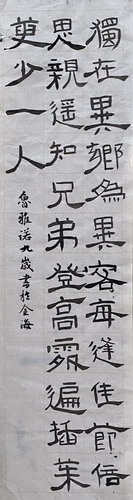 獨在異鄉為異客每逢佳節倍
思親遙知兄弟登高處遍插茱
萸少一人
魯雅諾九歲書於金海